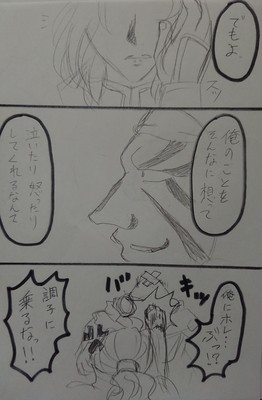 でもよ、
スッ
俺のことを
そんなに想って
泣いたり怒ったり
してくれるなんて
俺にホレ…
ぶっ!?
バキッ
調子に
乗るなっ!!!